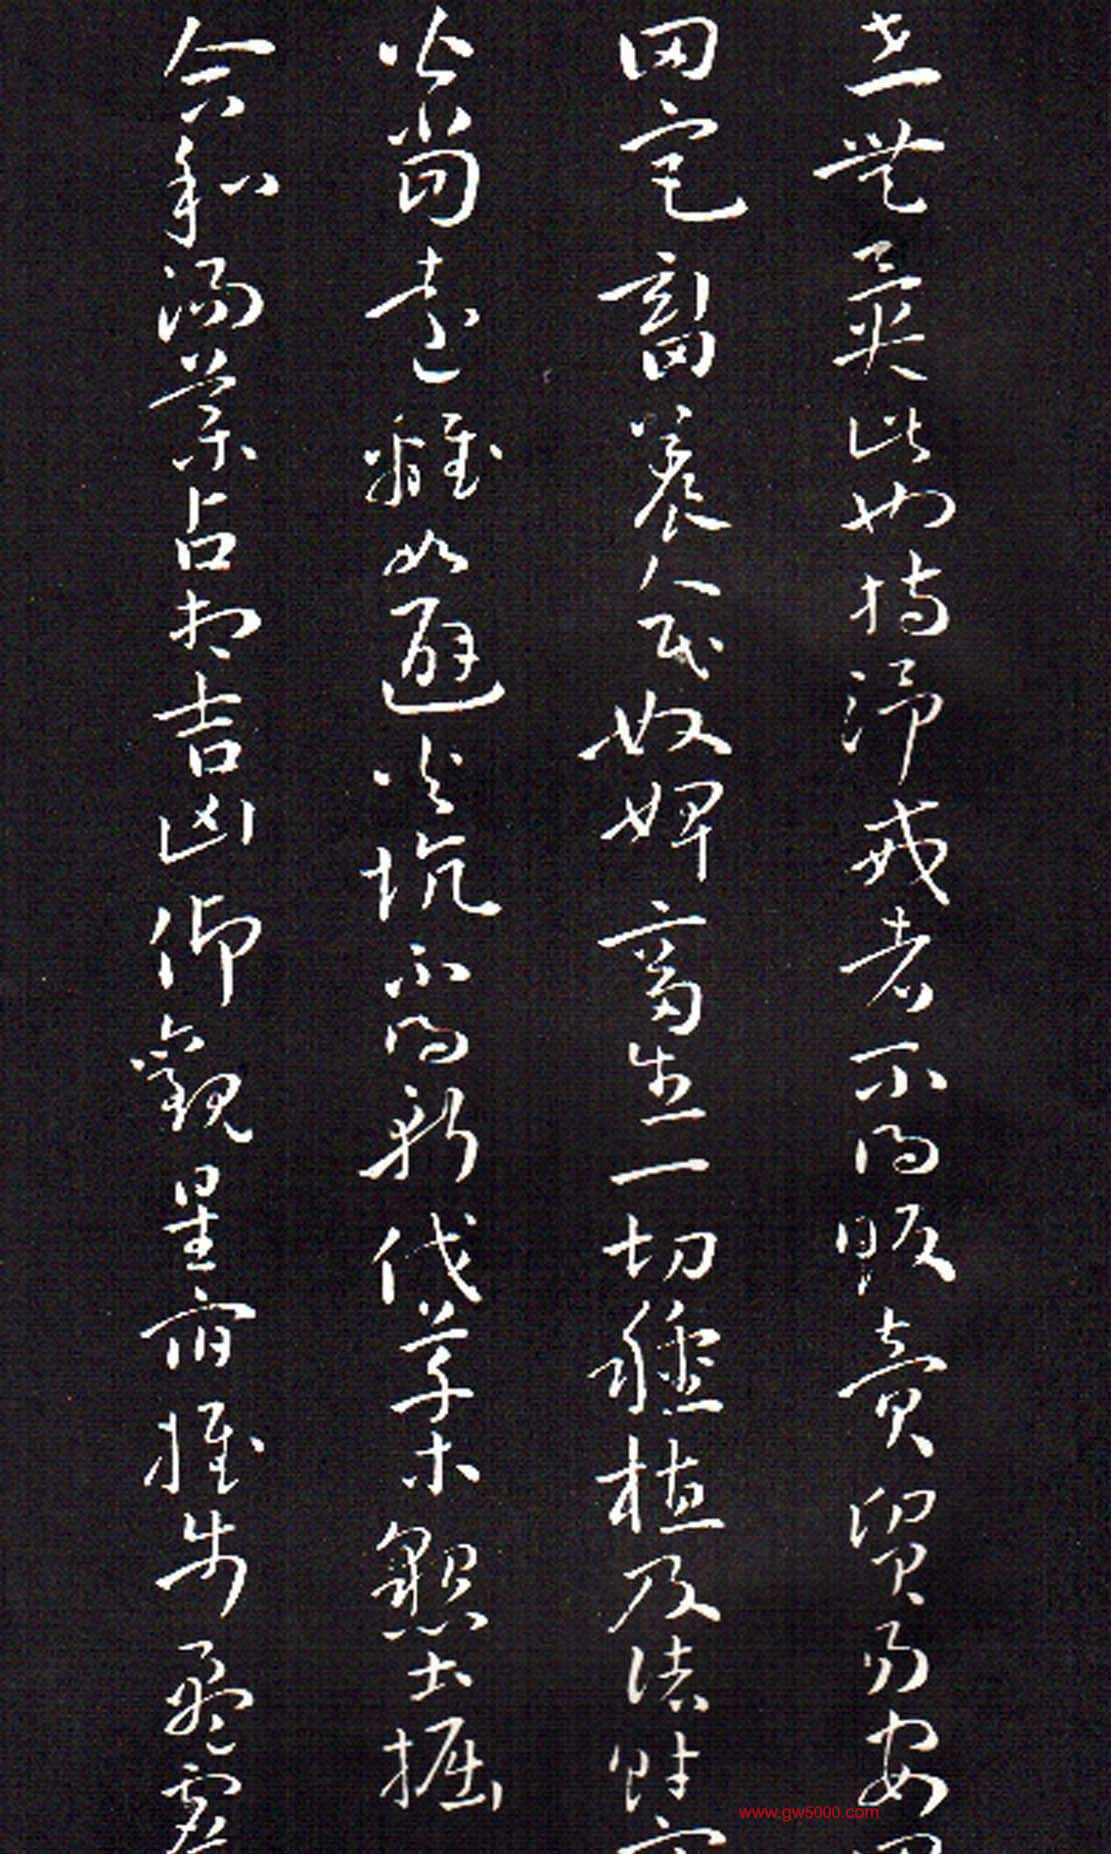 世無異此也持淨戒者不得販賣貿易安
田宅畜養人民奴婢畜生一切種植及諸財
皆當遠離如避火坑不得斬伐草木墾土掘
合和湯藥占相吉凶仰觀星宿推步盈虛
www.gw5000.com